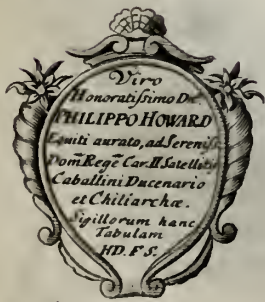 Viro
Honoratissimo Dno.
PHILIPPO HOWARD
Equiti aurato, ad Sereniss.
Dom. Regē Car. II Satellitio
Caballini Ducenario
et Chiliarchæ.
Sigillorum hanc
Tabulam
HD. FS.